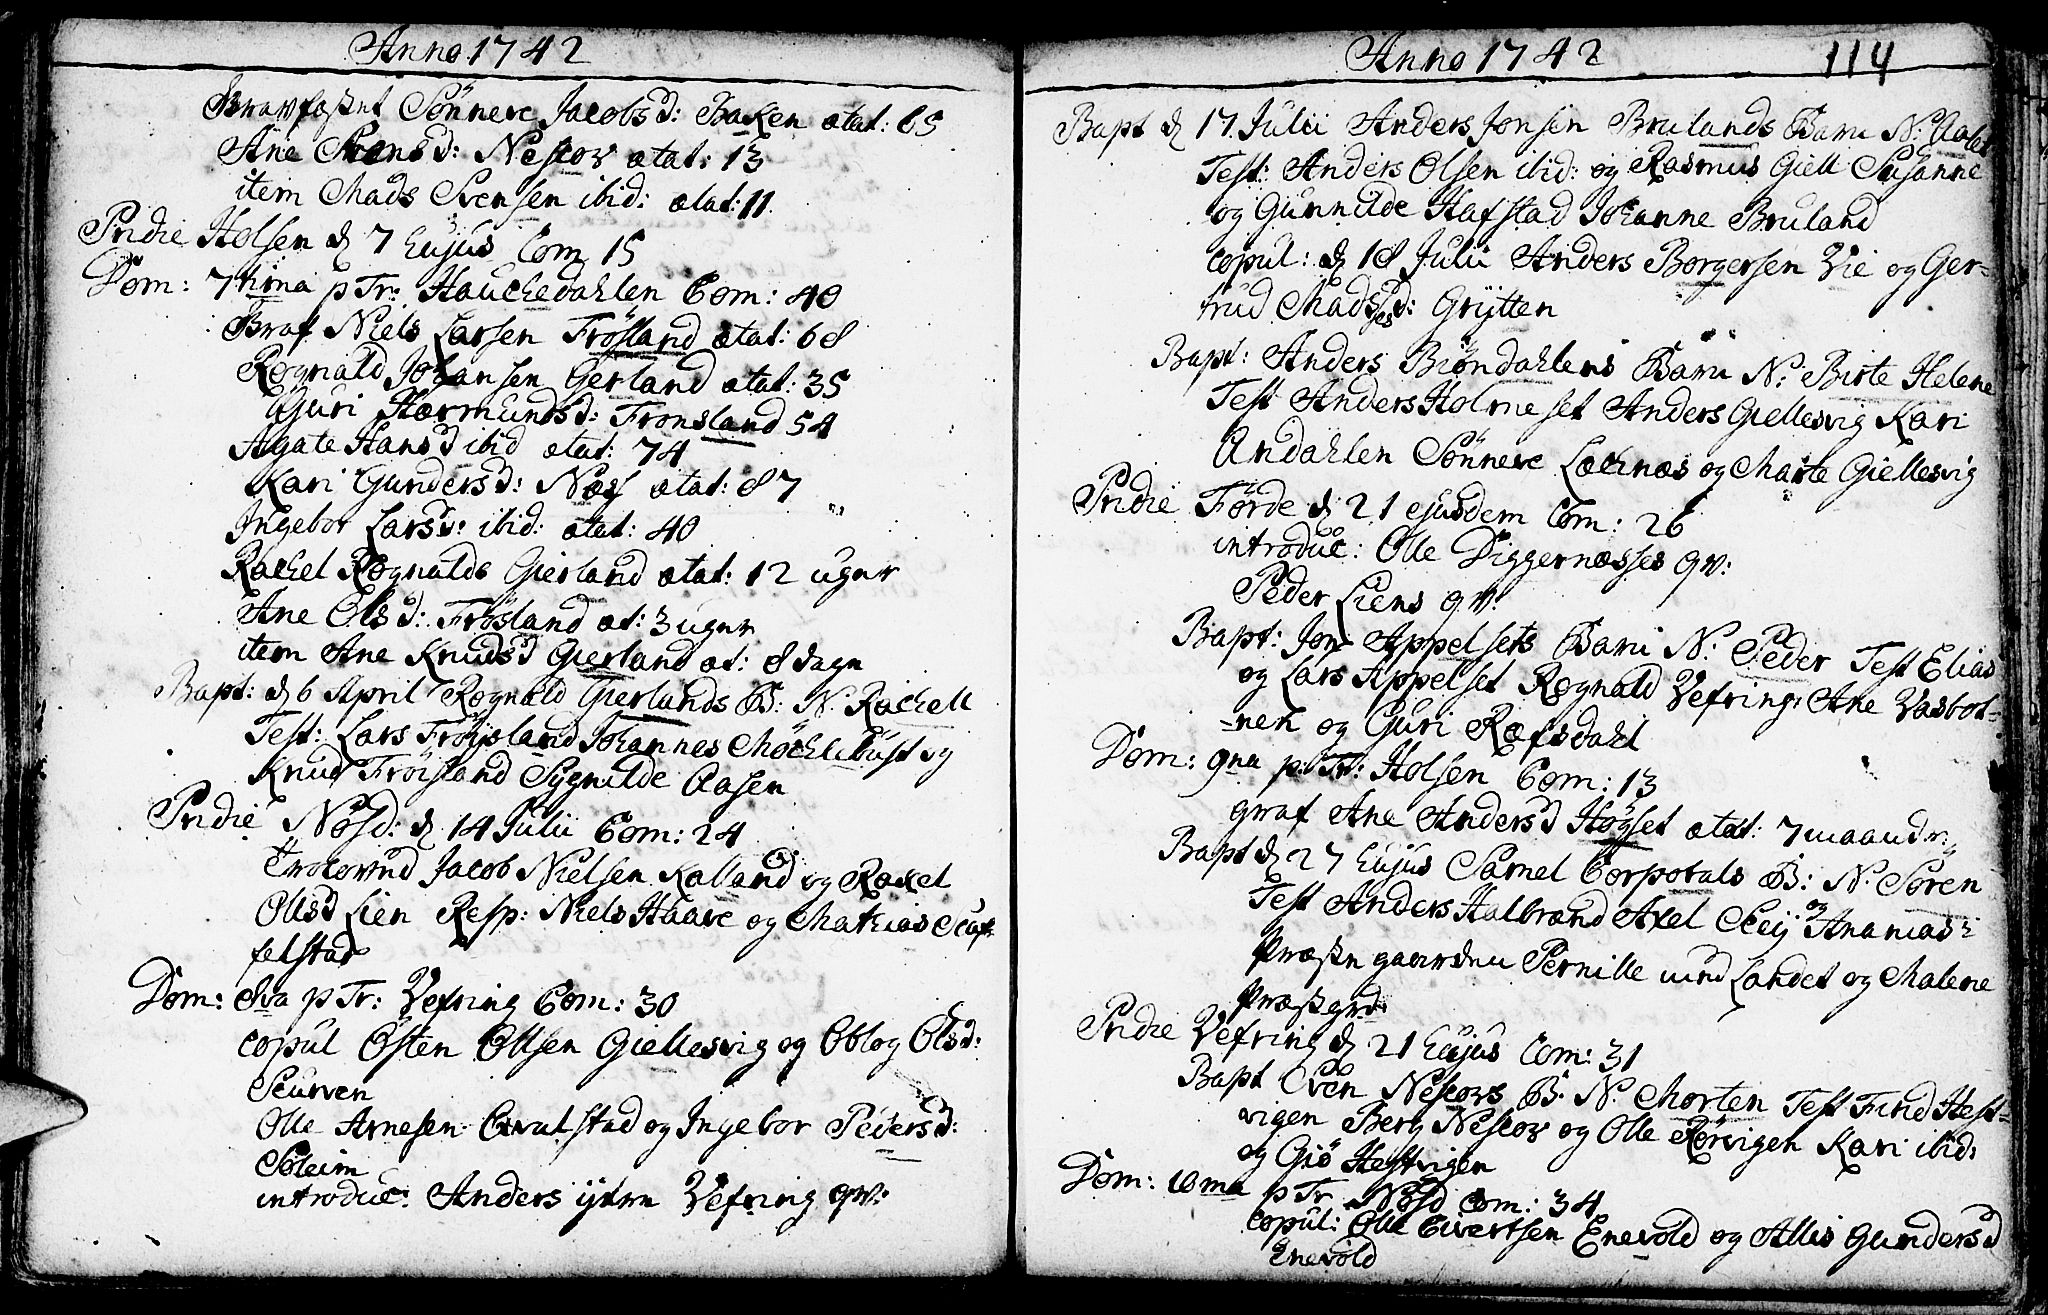 Anno 1742
Gravfæstet Sönneve Jacobsd: Baken ætat: 65
Ane Svensd: Nescov ætat: 13
item Mads Svensen ibid: ætat: 11.
Pridie Holsen d 7 Eujus Com 15
Dom: 7tima p Tr: Hauchedahlen Com: 40
Graf Niels Larsen Frösland ætat: 68
Rognald Johansen Gerland ætat: 35
Guri Hermundsd: Fronsland 54
Agate Hansd ibid ætat: 74
Kari Gundersd: Næss ætat: 87
Ingebor Larsd: ibid: ætat: 40
Rachel Rognalds Gierland ætat: 12 uger
Ane Olsd: Frösland æt: 3 uger
item Ane Knudsd Gierland æt: 8 dage
Bapt: d 6 April Rognald Gierlands B: N. Rachell
Test: Lars Fröisland Johannes Möchlebust og
Knud Fröisland Sygnilde Aasen
Pridie Nösd: d 14 Julii Com: 24
Troloved Jacob Nielsen Kalland og Raxel
Ollsd Lien Resp: Niels Haave og Mathias
felstad
Dom: 8va p Tr: Vefring Com: 30
copul Østen Ollsen Giellesvig og Oblog Olsd:
Scurven
Olle Arnesen stad og Ingebor Pedersd:
Soleim
introduc: Anders ytre Vefring qv:
Anno 1742
114
Bapt d 17. Julii Anders Jonsen Brulands Barn N:
Test: Anders Olsen ibid: og Rasmus Giell Susanne
og Gunnilde Hafstad Johanne Bruland
copul: d 18 Julii Anders Borgersen Vie og Ger=
trud Madsesd: Grytten
Bapt: Anders Biöndahlens Barn N: Birte Helene
Test Anders Holmeset Anders Giellesvig Kari
Andahlen Sönneve Lechnæs og Marte Giellesvig
Pridie Förde d 21 ejusdem Com: 26
introduc: Olle Diggernæsses qv:
Peder Liens qv:
Bapt: Jon Appelsets Barn N: Peder Test Elias
og Lars Appelset Rognald Vefring: Ane Vasbot=
=nen og Guri Ræfsdahl
Dom: 9na p: Tr: Holsen Com: 13
graf Ane Andersd Högset ætat: 7 maander
Bapt d 27 Eujus Samel Corporals B: N. Sören
Test Anders Halbrænd Axel og Ananias
Præstegaarden Pernille ved Landet og Malene
Præstegrd:
Pridie Vefring d 21 Eujus Com: 31
Bapt Sven Nescovs B. N. Morten Test Find Hest=
vigen Berg Nescov og Olle Rörvigen Kari ibid:
og Giö Hestvigen
Dom: 10ma p Tr Nösd Com: 34
copul: Olle Eivertsen Enevold og Allis Gundersd
Enevold